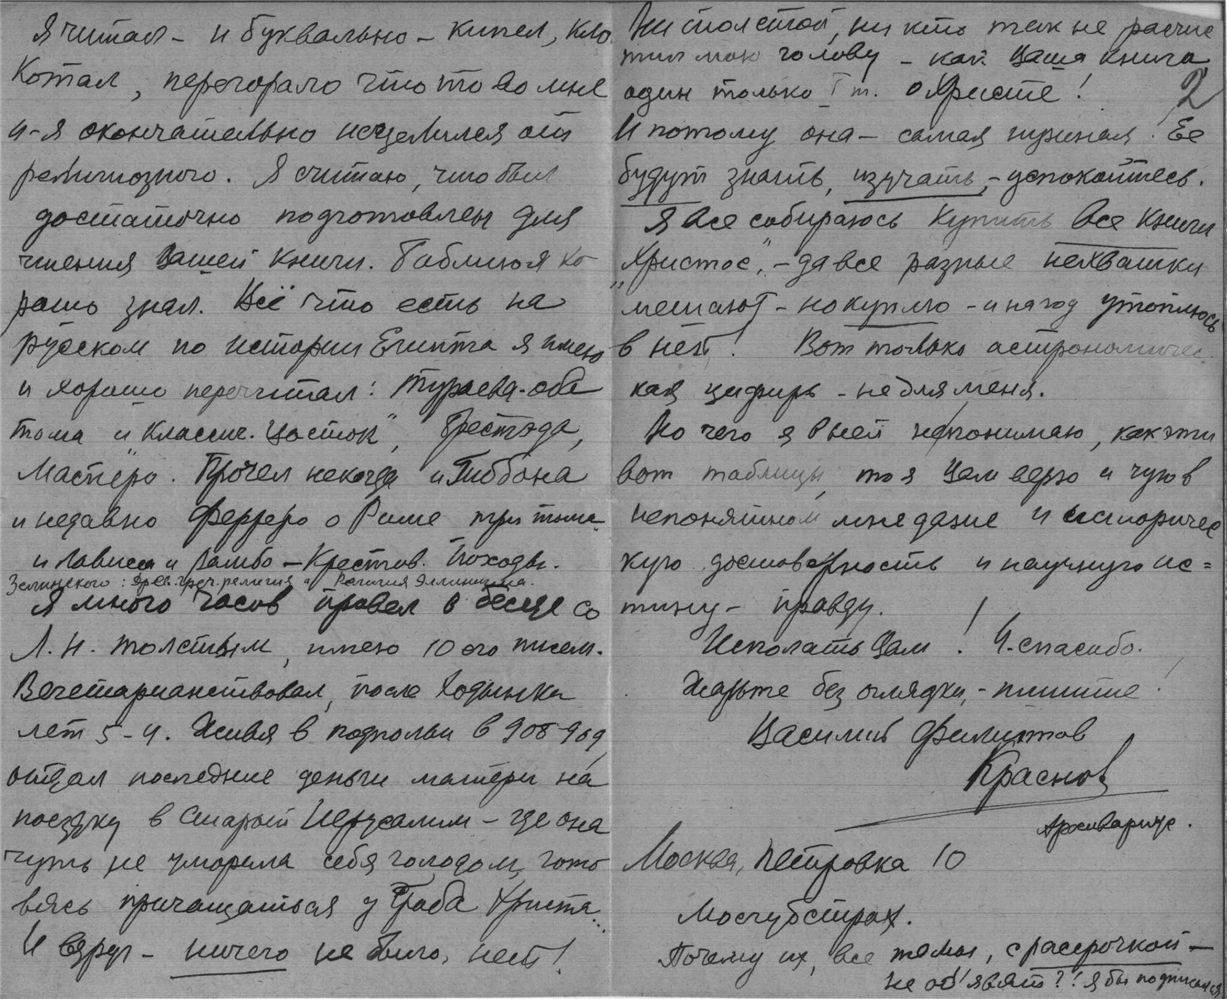 Я читал – и буквально – кипел, кло
котал, перегорало что то во мне
и – я окончательно исцелился от
религиозного. Я считаю, что был
достаточно подготовлен для
чтения Вашей книги. Библию я хо
рошо знал. Всё что есть на
русском по истории Египта я имею
и хорошо перечитал: Тураева – оба
тома и Классич. Восток", Брестэда,
Масперо. Прочел некогда и Гиббона
и недавно Ферреро о Риме три тома
и Лависса и Рамбо – Крестов. Походы.
Зелинского: Древ. греч. религия и Религия Эллинизма.
Я много часов провел в беседе со
Л. Н. Толстым, имею 10 его писем.
Вегетарианствовал, после Ходынки
лет 5-4. Живя в подпольи в 908-909,
отдал последние деньги матери на
поездку в Старый Иерусалим – где она
чуть не уморила себя голодом, гото
вясь причащаться у Гроба Христа...
И вдруг – ничего не было, нет!
2
Ни Толстой, ни кто так не расчис
тил мою голову – как Ваша книга
один только I т. о Христе!
И потому она – самая нужная! Ее
будут знать, изучать, – успокойтесь.
Я все собираюсь купить все книги
"Христос", – да все разные нехватки
мешают – но куплю – и на год утоплюсь
в ней! Вот только астрономичес
кая цифирь – не для меня.
Но чего я в ней не понимаю, как эти
вот таблицы, то я Вам верю и чую в
непонятном мне даже и историчес
кую достоверность и научную ис=
тину – правду.
Исполать Вам! И – спасибо!
Жарьте без оглядки, – пишите!
Василий Филиппов
Краснов
Архивариус.
Москва, Петровка 10
Мосгубстрах.
Почему их, все томы, с рассрочкой –
не об'явят??! Я бы подписался